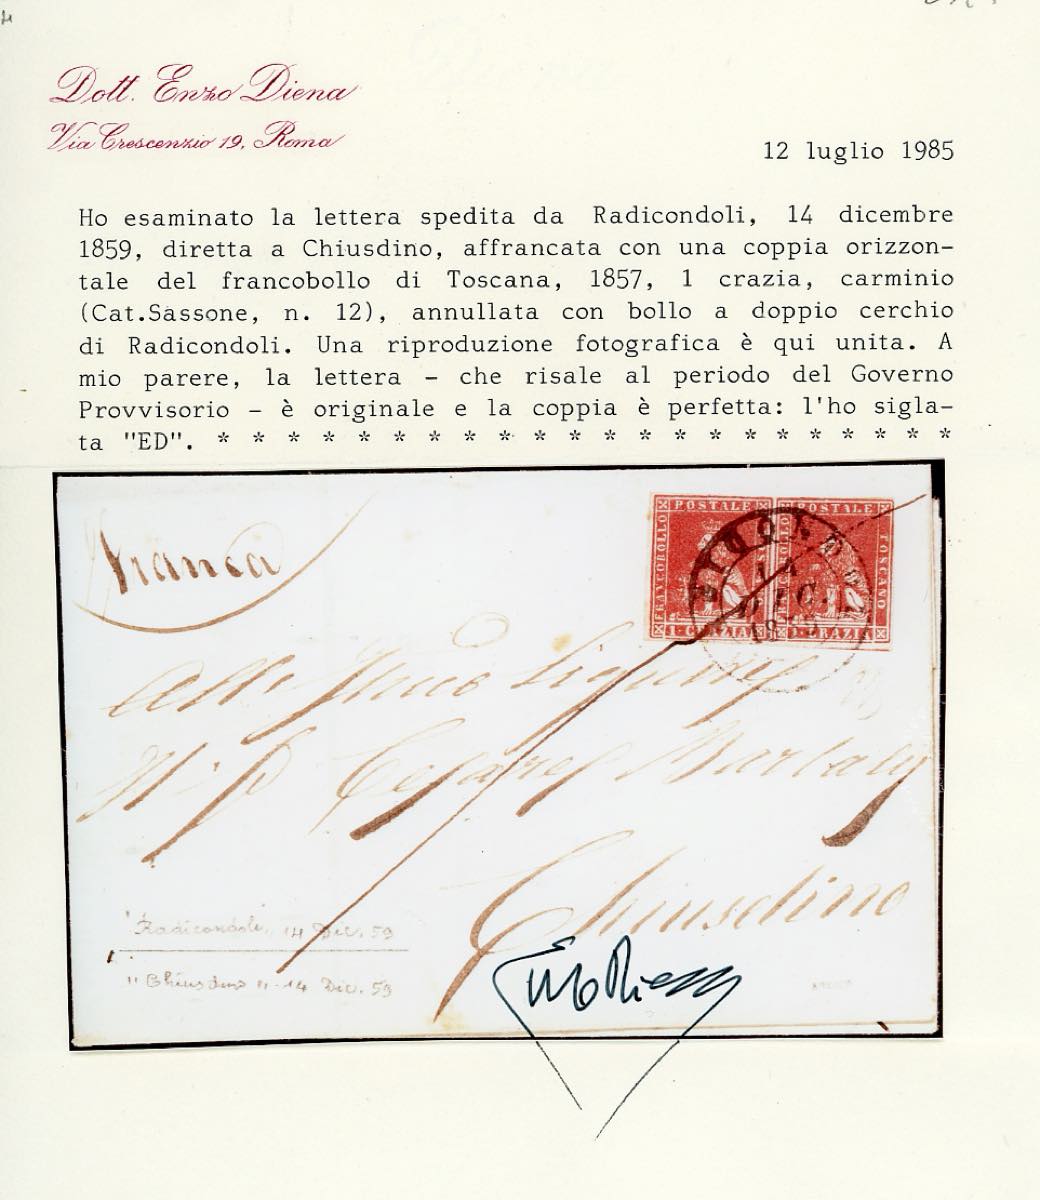 Dott. Enzo Diena
Via Crescenzio 19, Roma
12 luglio 1985
Ho esaminato la lettera spedita da Radicondoli, 14 dicembre
1859, diretta a Chiusdino, affrancata con una coppia orizzon-
tale del francobollo di Toscana, 1857, 1 crazia, carminio
(Cat.Sassone, n. 12), annullata con bollo a doppio cerchio
di Radicondoli. Una riproduzione fotografica è qui unita. A
mio parere, la lettera - che risale al periodo del Governo
Provvisorio - è originale e la coppia è perfetta: l'ho sigla-
ta "ED". * * * * * * * * * * * * * * * * * * * * *
POSTALE POSTALE
FRANCOBOLLO TOSCANO
1 CRAZIA 1 CRAZIA
14
DIC.
franca
Chiusdino
Radicondoli, 14 Dic. 59
" Chiusdino " - 14 Dic. 59
Enzo Diena